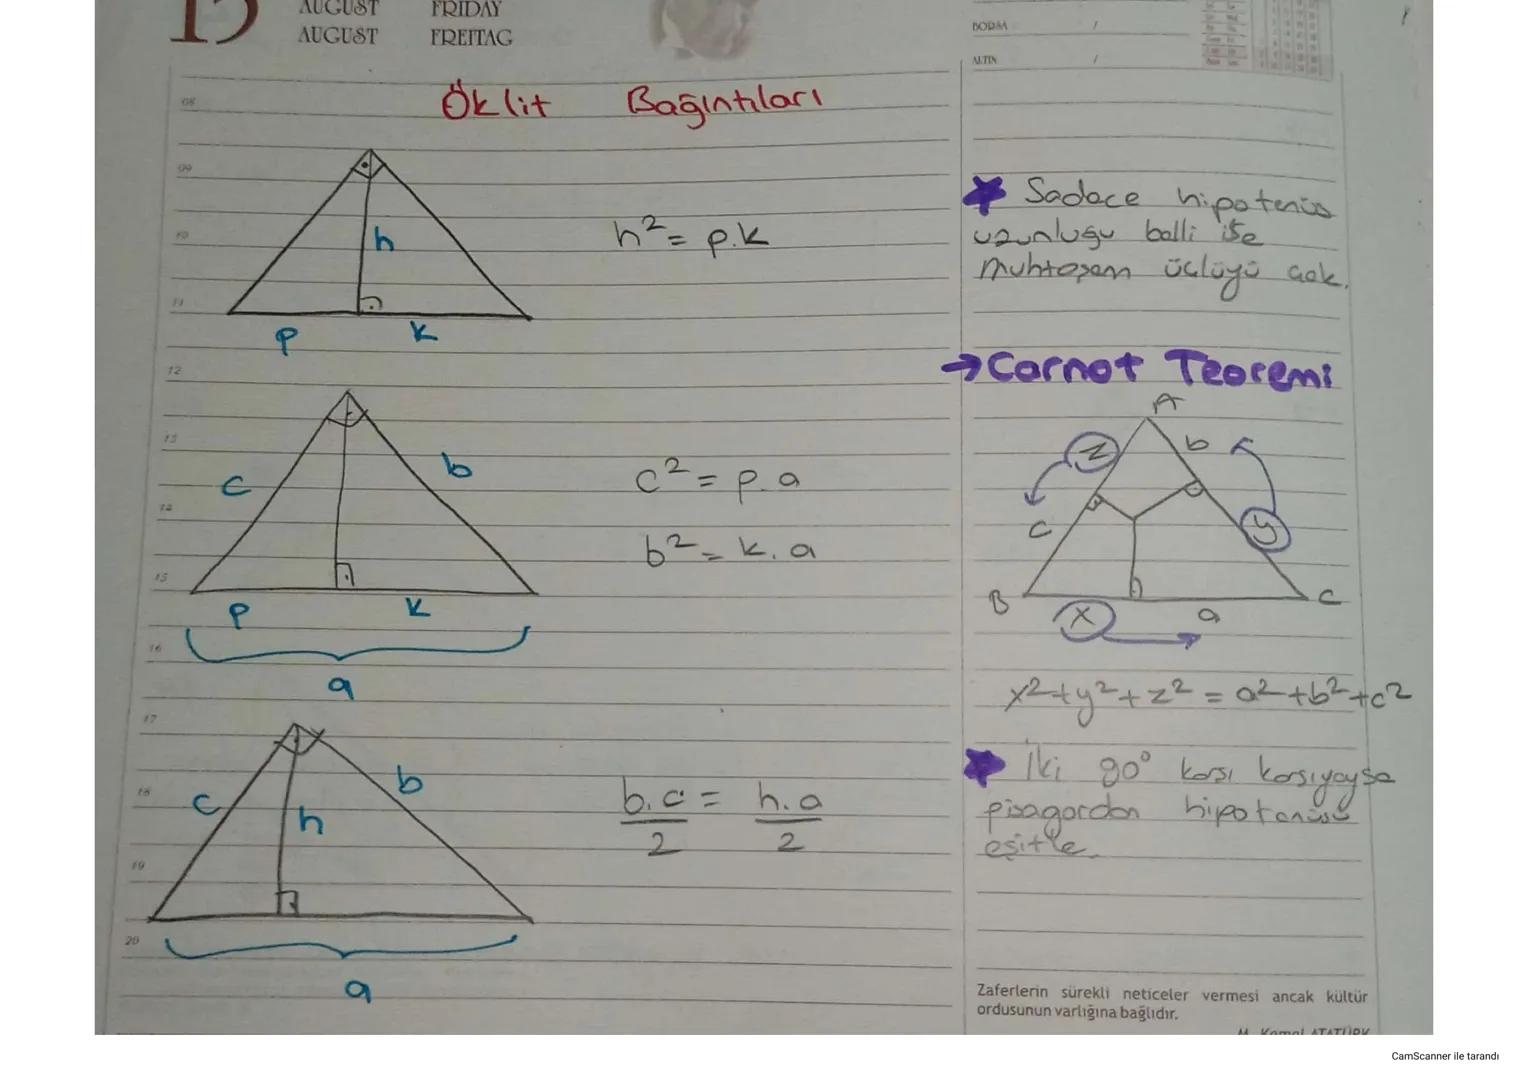 13
AUGUST FRIDAY
AUGUST FREITAG
BORSA /
ALTIN /
Öklit Bağıntıları
08
09
10
11
12
13
14
15
16
17
18
19
20
h
p k
h² = p.k
c b
p k
a
c² = p.a
b² = k.a
c h b
a
b.c = h.a
2 2
Sadace hipotenüs
uzunluğu balli ise
muhtaşam üçlüyü çak.
→ Carnot Teoremi
A
z b
c y
B C
x a
x²+y²+z² = a²+b²+c²
İki 90° karşı karşıyaysa
pisagordan hipotanüsü
eşitle.
Zaferlerin sürekli neticeler vermesi ancak kültür
ordusunun varlığına bağlıdır.
M. Kemal ATATÜRK
CamScanner ile tarandı